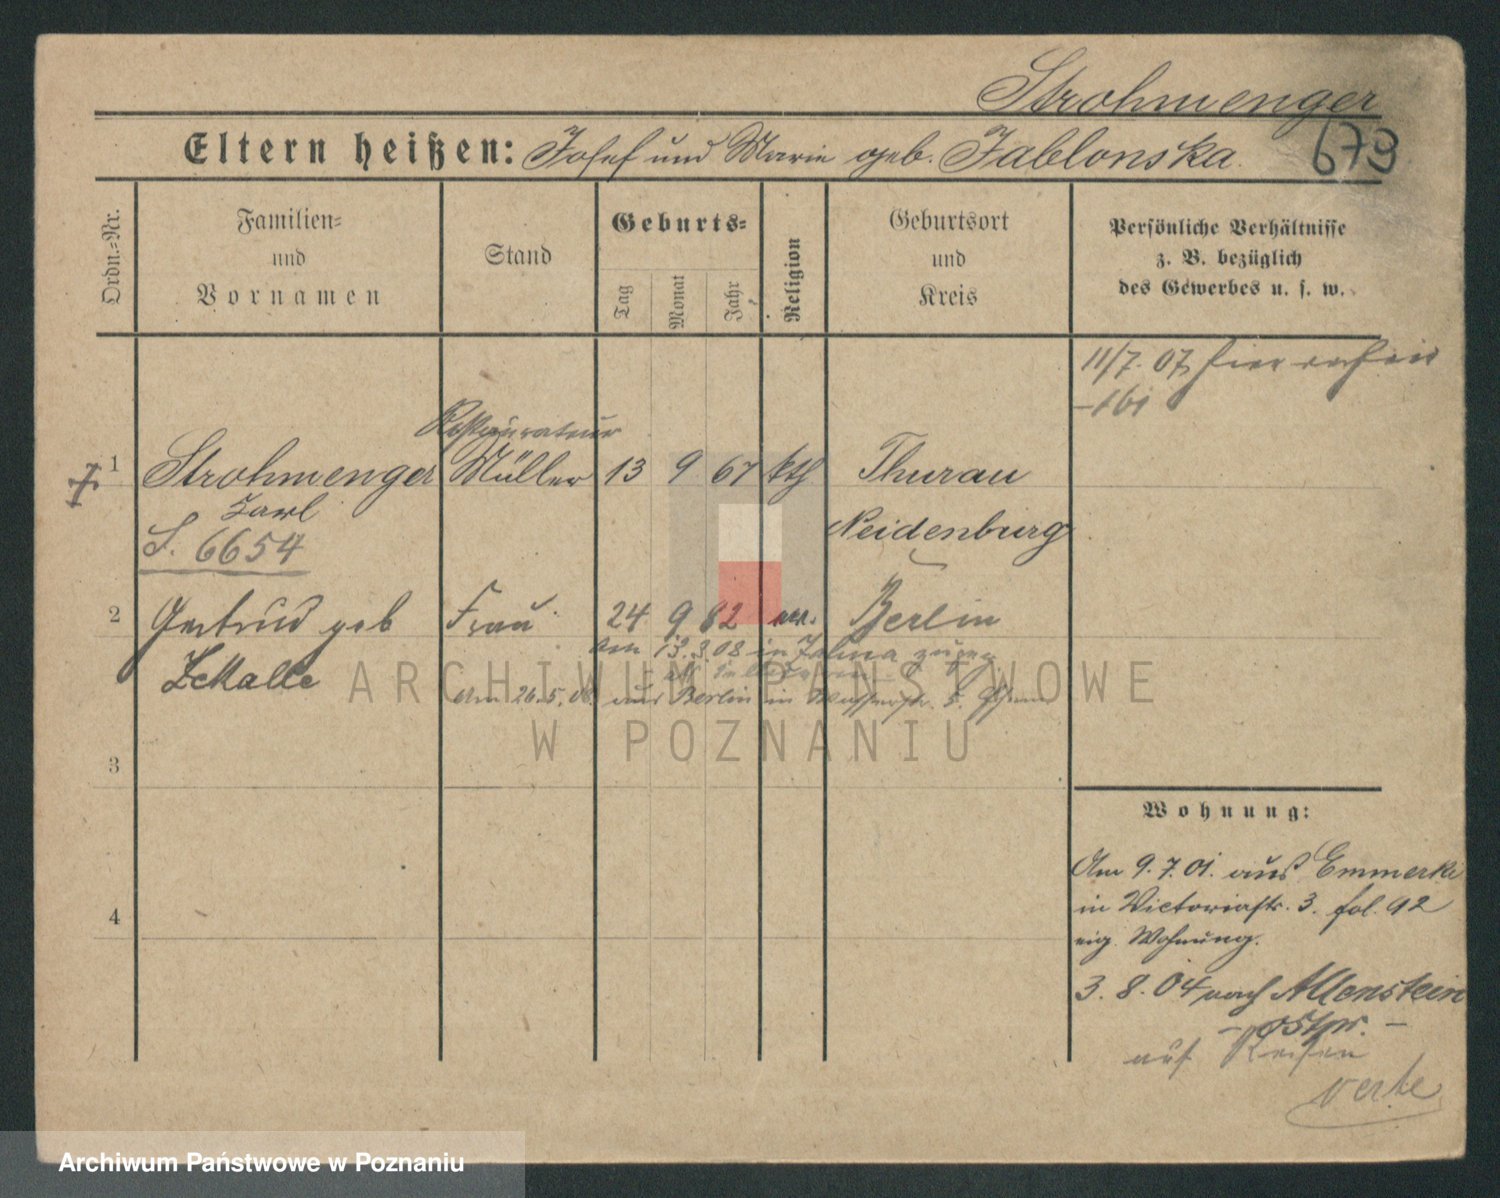 Strohmenger
Eltern heißen: Josef und Marie geb. Jablonska.
679
Ordn.=Nr.
Familien=
und
Vornamen
Stand
Geburts=
Tag
Monat
Jahr
Religion
Geburtsort
und
Kreis
Persönliche Verhältnisse
z. B. bezüglich
des Gewerbes u. s. w.
11/7. 07 hier
Restaurateur
1 Strohmenger Müller 13 9 67 kth Thurau
Karl Neidenburg
S. 6654
2 Gertrud geb Frau 24 9 82 Berlin
am 13.3.08 in
Am 26.5.06 aus Berlin in 5.
3
4
Wohnung:
Am 9.7.01. aus
in Victoriastr. 3. fol. 92
eig. Wohnung.
3. 8. 04 nach Allenstein
- Ostpr. -
auf Reisen
verte
ARCHIWUM PAŃSTWOWE
W POZNANIU
Archiwum Państwowe w Poznaniu